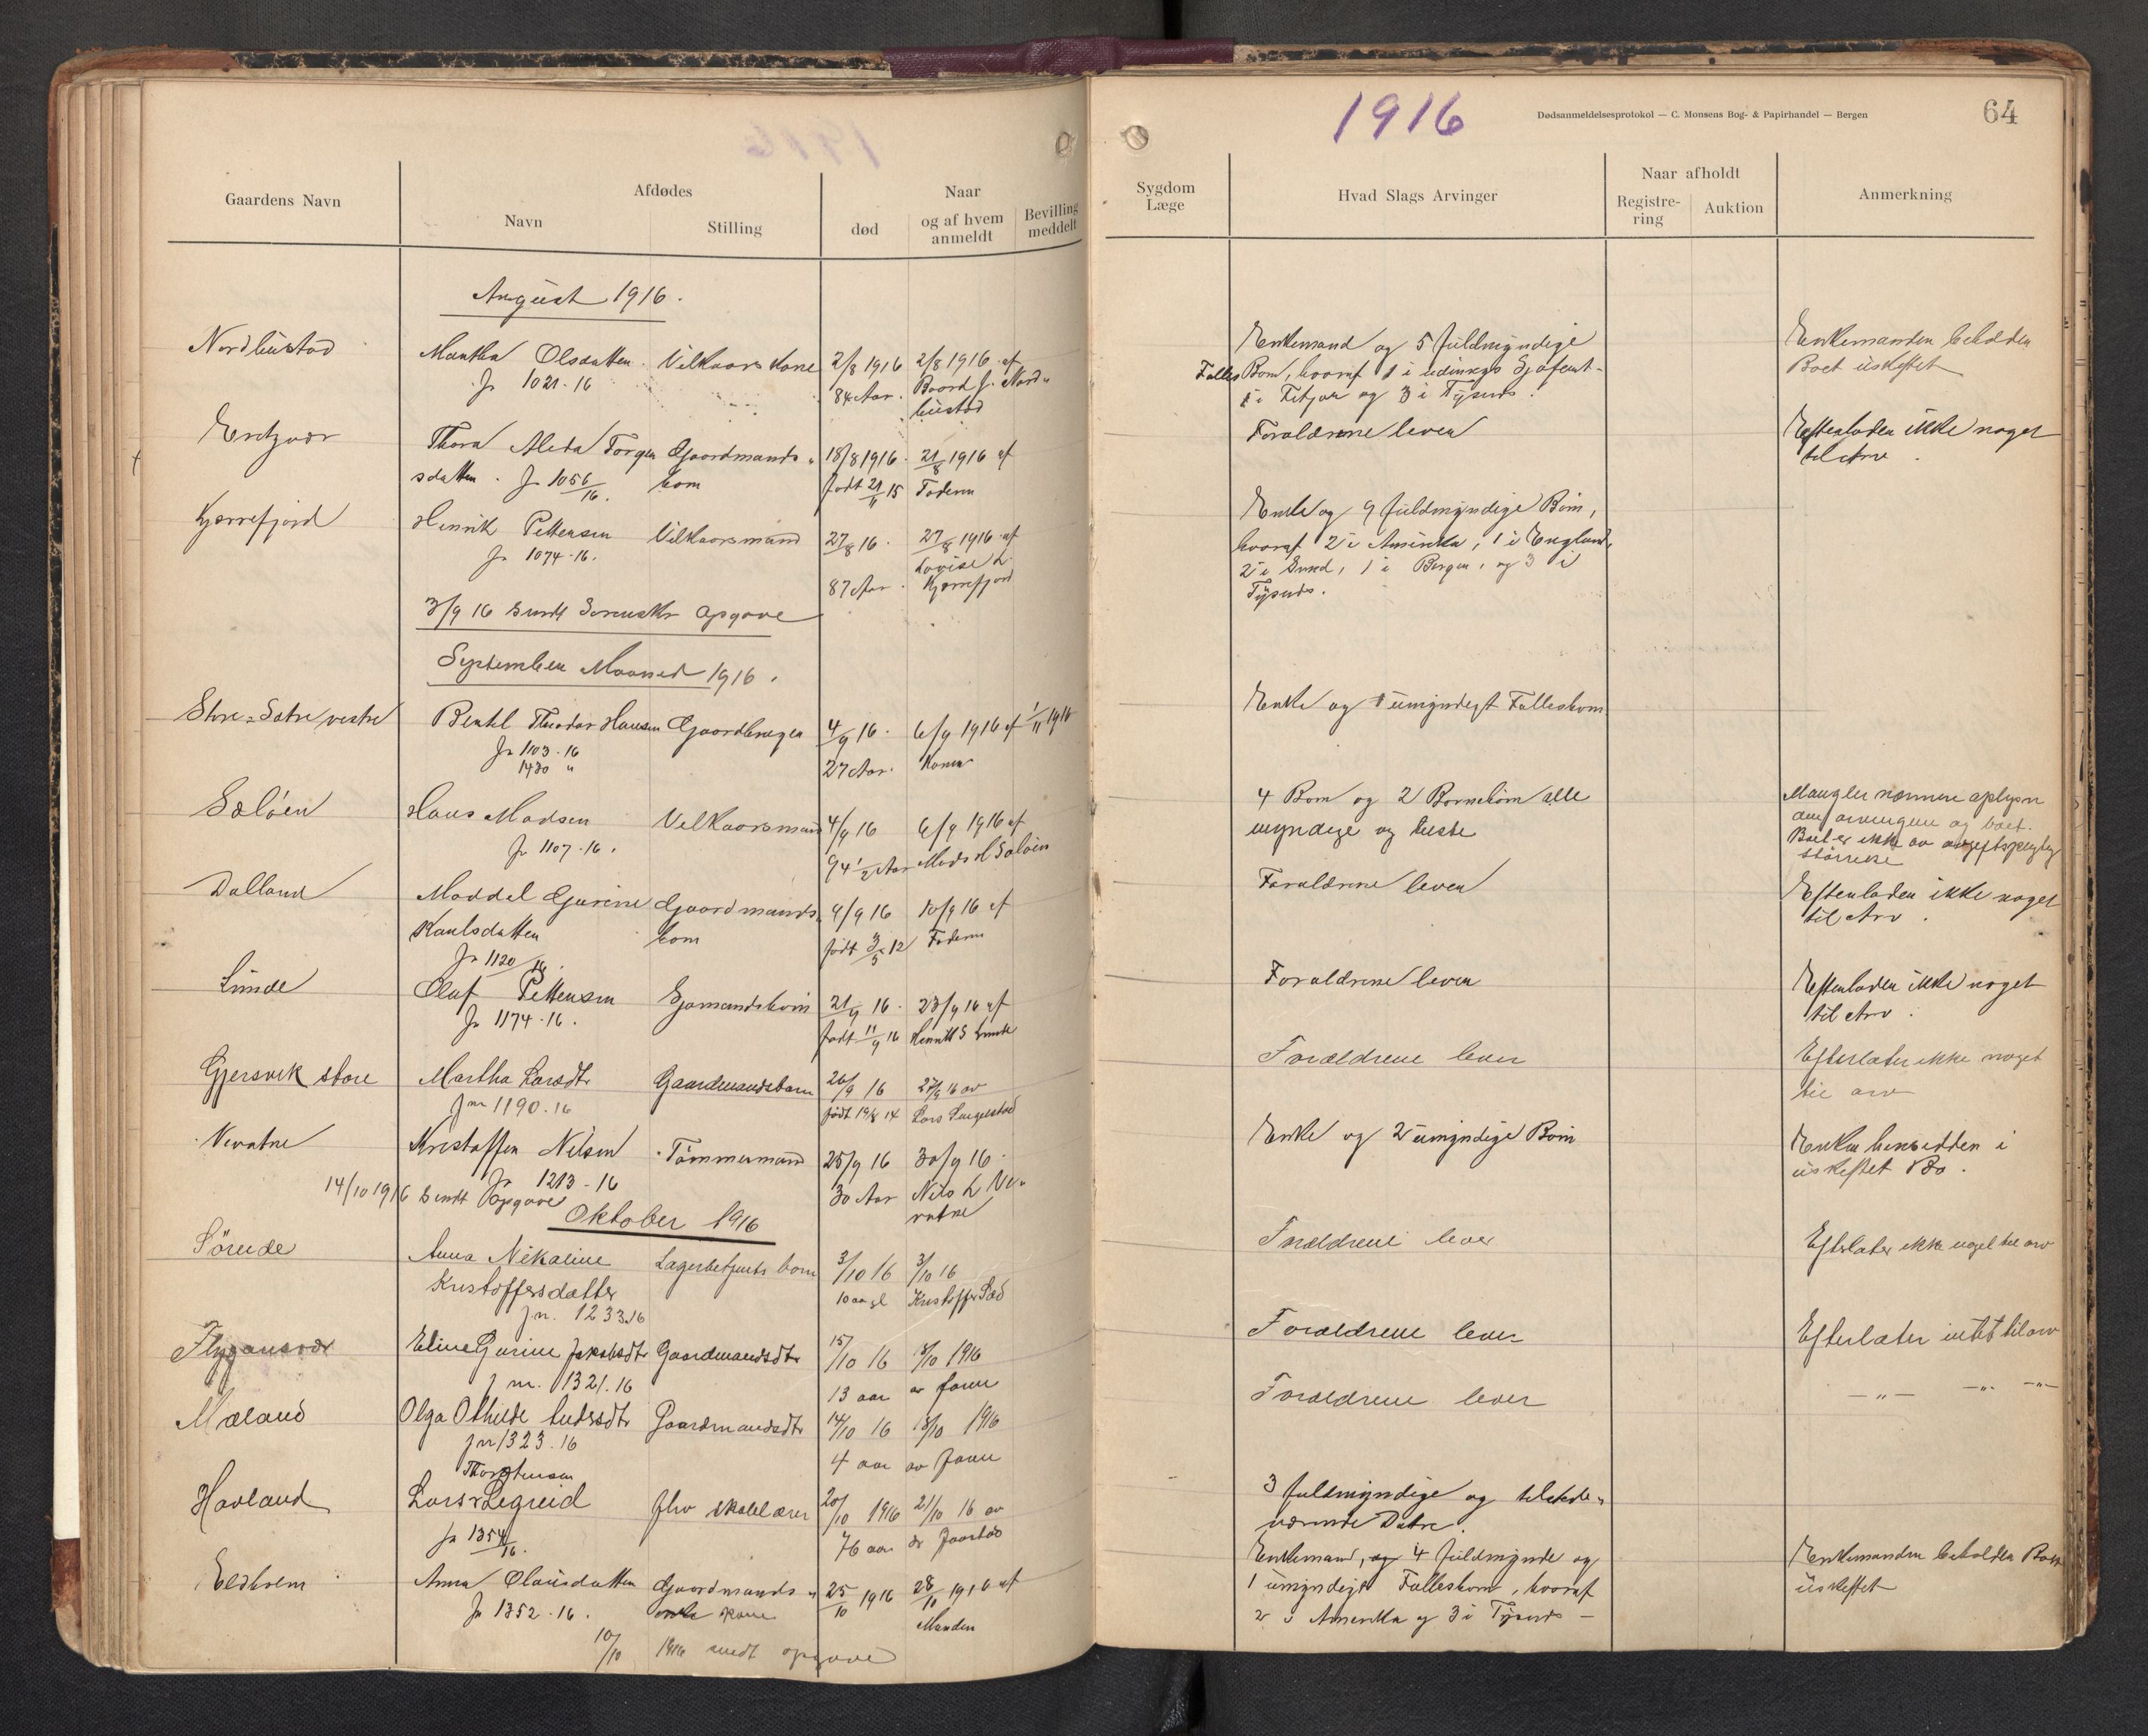 1916
Dødsanmeldelsesprotokol — C. Monsens Bog- & Papirhandel — Bergen
64
Gaardens Navn
Afdødes
Navn
Stilling
Naar
død
og af hvem anmeldt
Bevilling meddelt
Sygdom
Læge
Hvad Slags Arvinger
Naar afholdt
Registrering
Auktion
Anmerkning
August 1916.
Nordhustad Martha Olsdatter Vilkaarskone 2/8 1916 2/8 1916 af Enkemand og 5 fuldmyndige Enkemanden beholder
Jr 1021-16 84 Aar. Baard J. Nord- Fælles Børn, hvoraf 1 i Boet uskiftet
hustad 1 i Fitjar og 3 i Tysnes.
Thora Alida Torger Gaardmands- 18/8 1916. 21/8 1916 af Forældrene lever Efterlader ikke noget
sdatter. Jr 1056/16. barn født Faderen til Arv.
Kjærrefjord Henrik Pettersen Vilkaarsmand 27/8 16. 27/8 1916 af Enke og 9 fuldmyndige Børn,
Jr 1074-16. Lovise L. hvoraf 2 i Amerika, 1 i England,
87 Aar. Kjærrefjord 2 i Sund, 1 i Bergen, og 3 i
Tysnes.
3/9 16 sendt Opgave
September Maaned 1916.
Store-Sætre vestre Bertel Theodor Hansen Gaardbruger 4/9 16. 6/9 1916 af 1/11 1916 Enke og 1 umyndigt Fællesbarn
Jr 1103-16 27 Aar. Konen
1430 "
Sæløen Hans Madsen Vilkaarsmand 4/9 16 6/9 1916 af 4 Børn og 2 Børnebørn alle Mangler nærmere oplysn
Jr 1107-16. 94 1/2 Aar Mads H Sæløen myndige og om arvingerne og boet.
Boet er ikke av
størrelse
Dalland Maddel Gurine Gaardmands- 9/9 16 10/9 16 af Forældrene lever Efterlader ikke noget
Karlsdatter barn født 3/5 12 Faderen til Arv.
Jr 1120/16.
Lunde Olaf Pettersen Sjømandsbarn 21/9 16. 23/9 16 af Forældrene lever Efterlader ikke noget
Jr 1174-16. født 11/9 16 Henrik S Lunde til Arv.
Gjersvik store Martha Larsdtr Gaardmandsbarn 26/9 16 27/9 16 av Forældrene lever Efterlater ikke noget
Jnr 1190.16 født 19/8 14 Lars til arv
Vevatne Kristoffer Nilsen Tømmermand 25/9 16 30/9 16. Enke og 2 umyndige Børn Enken hensidder i
Jr 1213-16 30 Aar Nils L Ve- uskiftet Bo.
14/10 1916 Sendt Opgave vatne
Oktober 1916
Anna Nikoline Lagerbetjents barn 3/10 16 3/10 16 Forældrene lever Efterlater ikke noget til arv
Kristoffersdatter 10 Kristoffer
Jn. 1233.16
Flygansvær Eline Gurine Jakobsdtr Gaardmandsdtr 15/10 16 18/10 1916 Forældrene lever Efterlater intet til arv
J nr. 1321.16 13 aar av faren
Mæland Olga Othilde Andersdtr Gaardmandsdtr 14/10 16 18/10 1916 Forældrene lever — " — — " — — " —
Jnr 1323.16 4 aar av faren
Thorstensen
Havland Lars Legreid fhv skolelærer 20/10 1916 21/10 16 av 3 fuldmyndige og tilstede-
Jr 1354/16. 76 aar værende Døtre.
Eldholm Anna Olausdatter Gaardmands- 25/10 1916 28/10 1916 af Enkemand, og 4 fuldmynde og Enkemanden beholder Boet
Jr 1352-16. kone Manden 1 umyndigt Fællesbarn, hvoraf uskiftet
2 i Amerika og 3 i Tysnes —
10/10 1916 sendt opgave